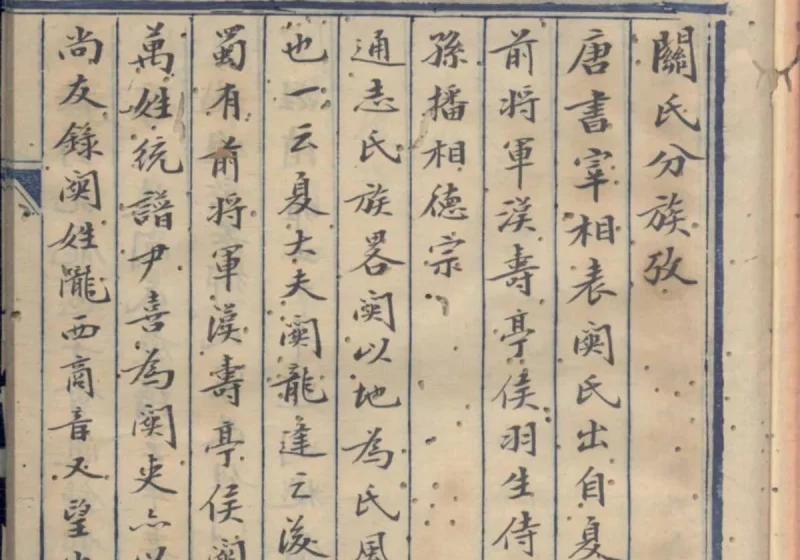 關氏分族攷
唐書宰相表関氏出自夏
前将軍漢壽亭侯羽生侍
孫播相德宗
通志氏族畧関以地為氏風
也一云夏大夫関龍逢之後
蜀有前将軍漢壽亭侯関
萬姓统譜尹喜為関吏亦
尚友錄関姓隴西商音又望